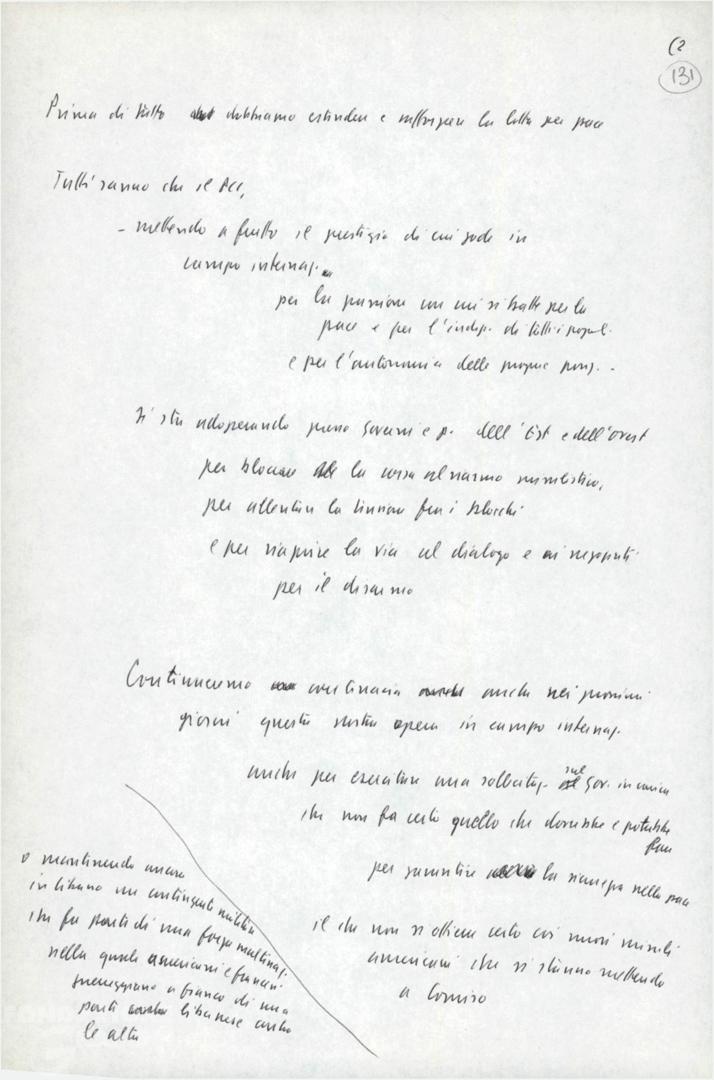 (2
131
Prima di tutto dobbiamo estendere e rafforzare la lotta per pace
Tutti sanno che il PCI,
- mettendo a frutto il prestigio di cui gode in
campo internaz.
per la passione con cui si batte per la
pace e per l'indip. di tutti i popoli
e per l'autonomia delle proprie posiz. -
si sta adoperando presso governi e p. dell'Est e dell'Ovest
per bloccare la corsa al riarmo missilistico,
per allentare la tensione fra i blocchi
e per riaprire la via al dialogo e ai negoziati
per il disarmo
Continueremo con ostinazia anche nei prossimi
giorni questa nostra opera in campo internaz.
anche per esercitare una sollecitaz. sul Gov. in carica
che non fa certo quello che dovrebbe e potrebbe
fare
per garantire la sicurezza nella pace
il che non si ottiene certo coi nuovi missili
americani che si stanno mettendo
a Comiso
o mantenendo ancora
in Libano un contingente militare
che fa parte di una forza multinaz.
nella quale americani e francesi
parteggiano a fianco di una
parte libanese contro
le altre